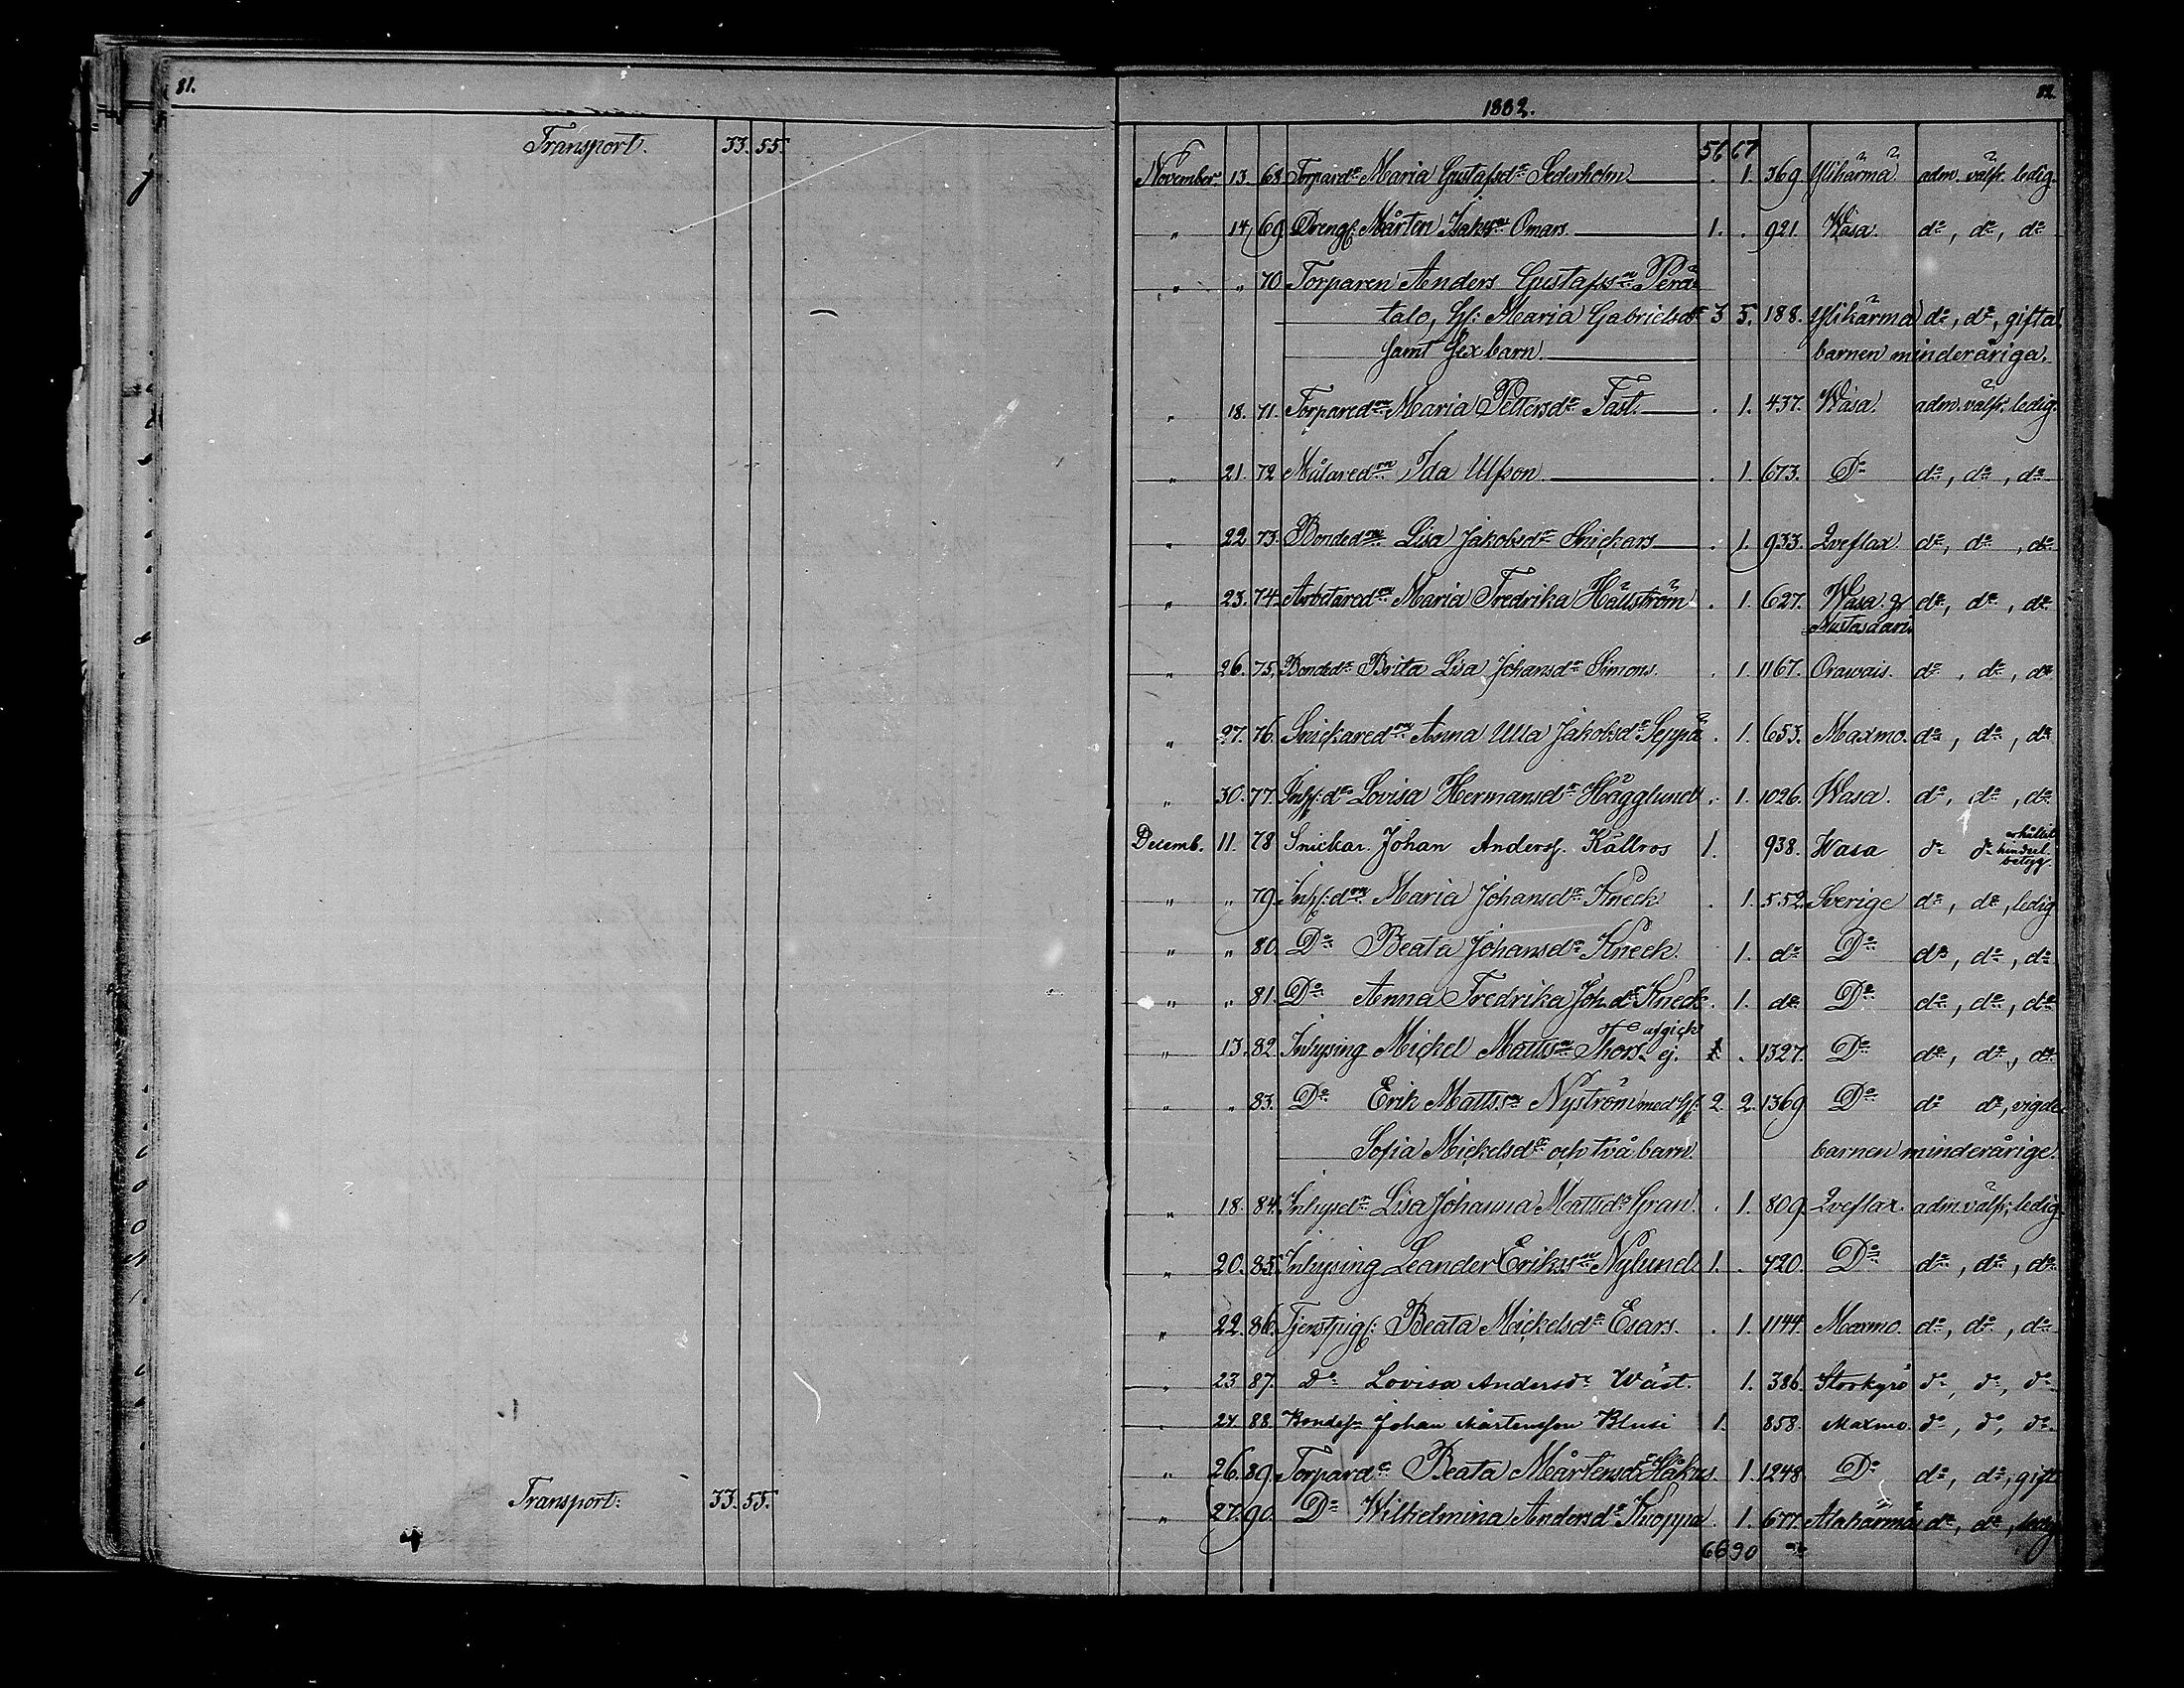 81.
Transport. 33. 55.
Transport: 33. 55.
82.
1882.
56 67
November. 13. 68 Torpard:a Maria Gustafsd:r Sederholm . 1. 369 Ylihärmä adm. välfr. ledig.
" 14 69 Drengf: Mårten Isakss:n Omars 1. . 921. Wasa. d:o, d:o, d:o
" " 70 Torparen Anders Gustafss:n Perä-
talo, hf: Maria Gabrielsd:r 3 5. 188. Ylihärmä d:o, d:o, gifta.
samt sex barn. barnen minderåriga.
" 18. 71. Torpared:n Maria Pettersd:r Fast. . 1. 437. Wasa. adm. välfr. ledig.
" 21. 72 Målared:n Ida Ulfson . 1. 673. D:o d:o, d:o, d:o
" 22 73. Bonded:n Lisa Jakobsd:r Snickars . 1. 933. Qveflax. d:o, d:o, d:o
" 23. 74. Arbetared:n Maria Fredrika Hällström . 1. 627. Wasa. d:o, d:o, d:o
" 26. 75. Bonded:r Brita Lisa Johansd:r Simons. . 1. 1167. Orawais. d:o, d:o, d:o
" 27. 76. Snickared:n Anna Ulla Jakobsd:r Seppä . 1. 653. Maxmo. d:o, d:o, d:o
" 30. 77. Inhf: d:r Lovisa Hermansd:r Hägglund . 1. 1026. Wasa. d:o, d:o, d:o
Decemb. 11. 78 Snickar. Johan Anderss. Källros 1. 938. Wasa d:o d:o erhållit hinderl. betyg.
" " 79 Inhf: d:n Maria Johansd:r Kneck . 1. 552. Sverige d:o, d:o, ledig
" " 80. D:o Beata Johansd:r Kneck. 1. d:o D:o d:o, d:o, d:o
" " 81. D:o Anna Fredrika Joh. d:r Kneck . 1. d:o D:o d:o, d:o, d:o
" 13. 82. Inhysing Mickel Matts:n Thors. afgick ej. 1 . 1327. D:o d:o, d:o, d:o
" " 83. D:o Erik Matts:n Nyström med hf: 2. 2. 1369 D:o d:o d:o, vigde.
Sofia Mickelsd:r och två barn. barnen minderårige.
" 18. 84. Inhysd:r Lisa Johanna Mattsd:r Gran. . 1. 809. Qveflax. adm. välfr. ledig
" 20. 85. Inhysing Leander Erikss:n Nylund 1. . 420. D:o d:o, d:o, d:o
" 22. 86. Tjenstpig: Beata Mickelsd:r Esars. . 1. 1144. Maxmo. d:o, d:o, d:o
" 23 87. D:o Lovisa Andersd:r Wäst. 1. 386. Storkyro d:o, d:o, d:o
" 24. 88. Bondes:n Johan Mårtensson Blusi 1. 858. Maxmo. d:o, d:o, d:o
" 26. 89. Torpard:r Beata Mårtensd:r Håkns . 1. 1248. D:o d:o, d:o, gift
" 27. 90. D:o Wilhelmina Andersd:r Knoppa . 1. 677. Alahärmä d:o, d:o, ledig
66 90